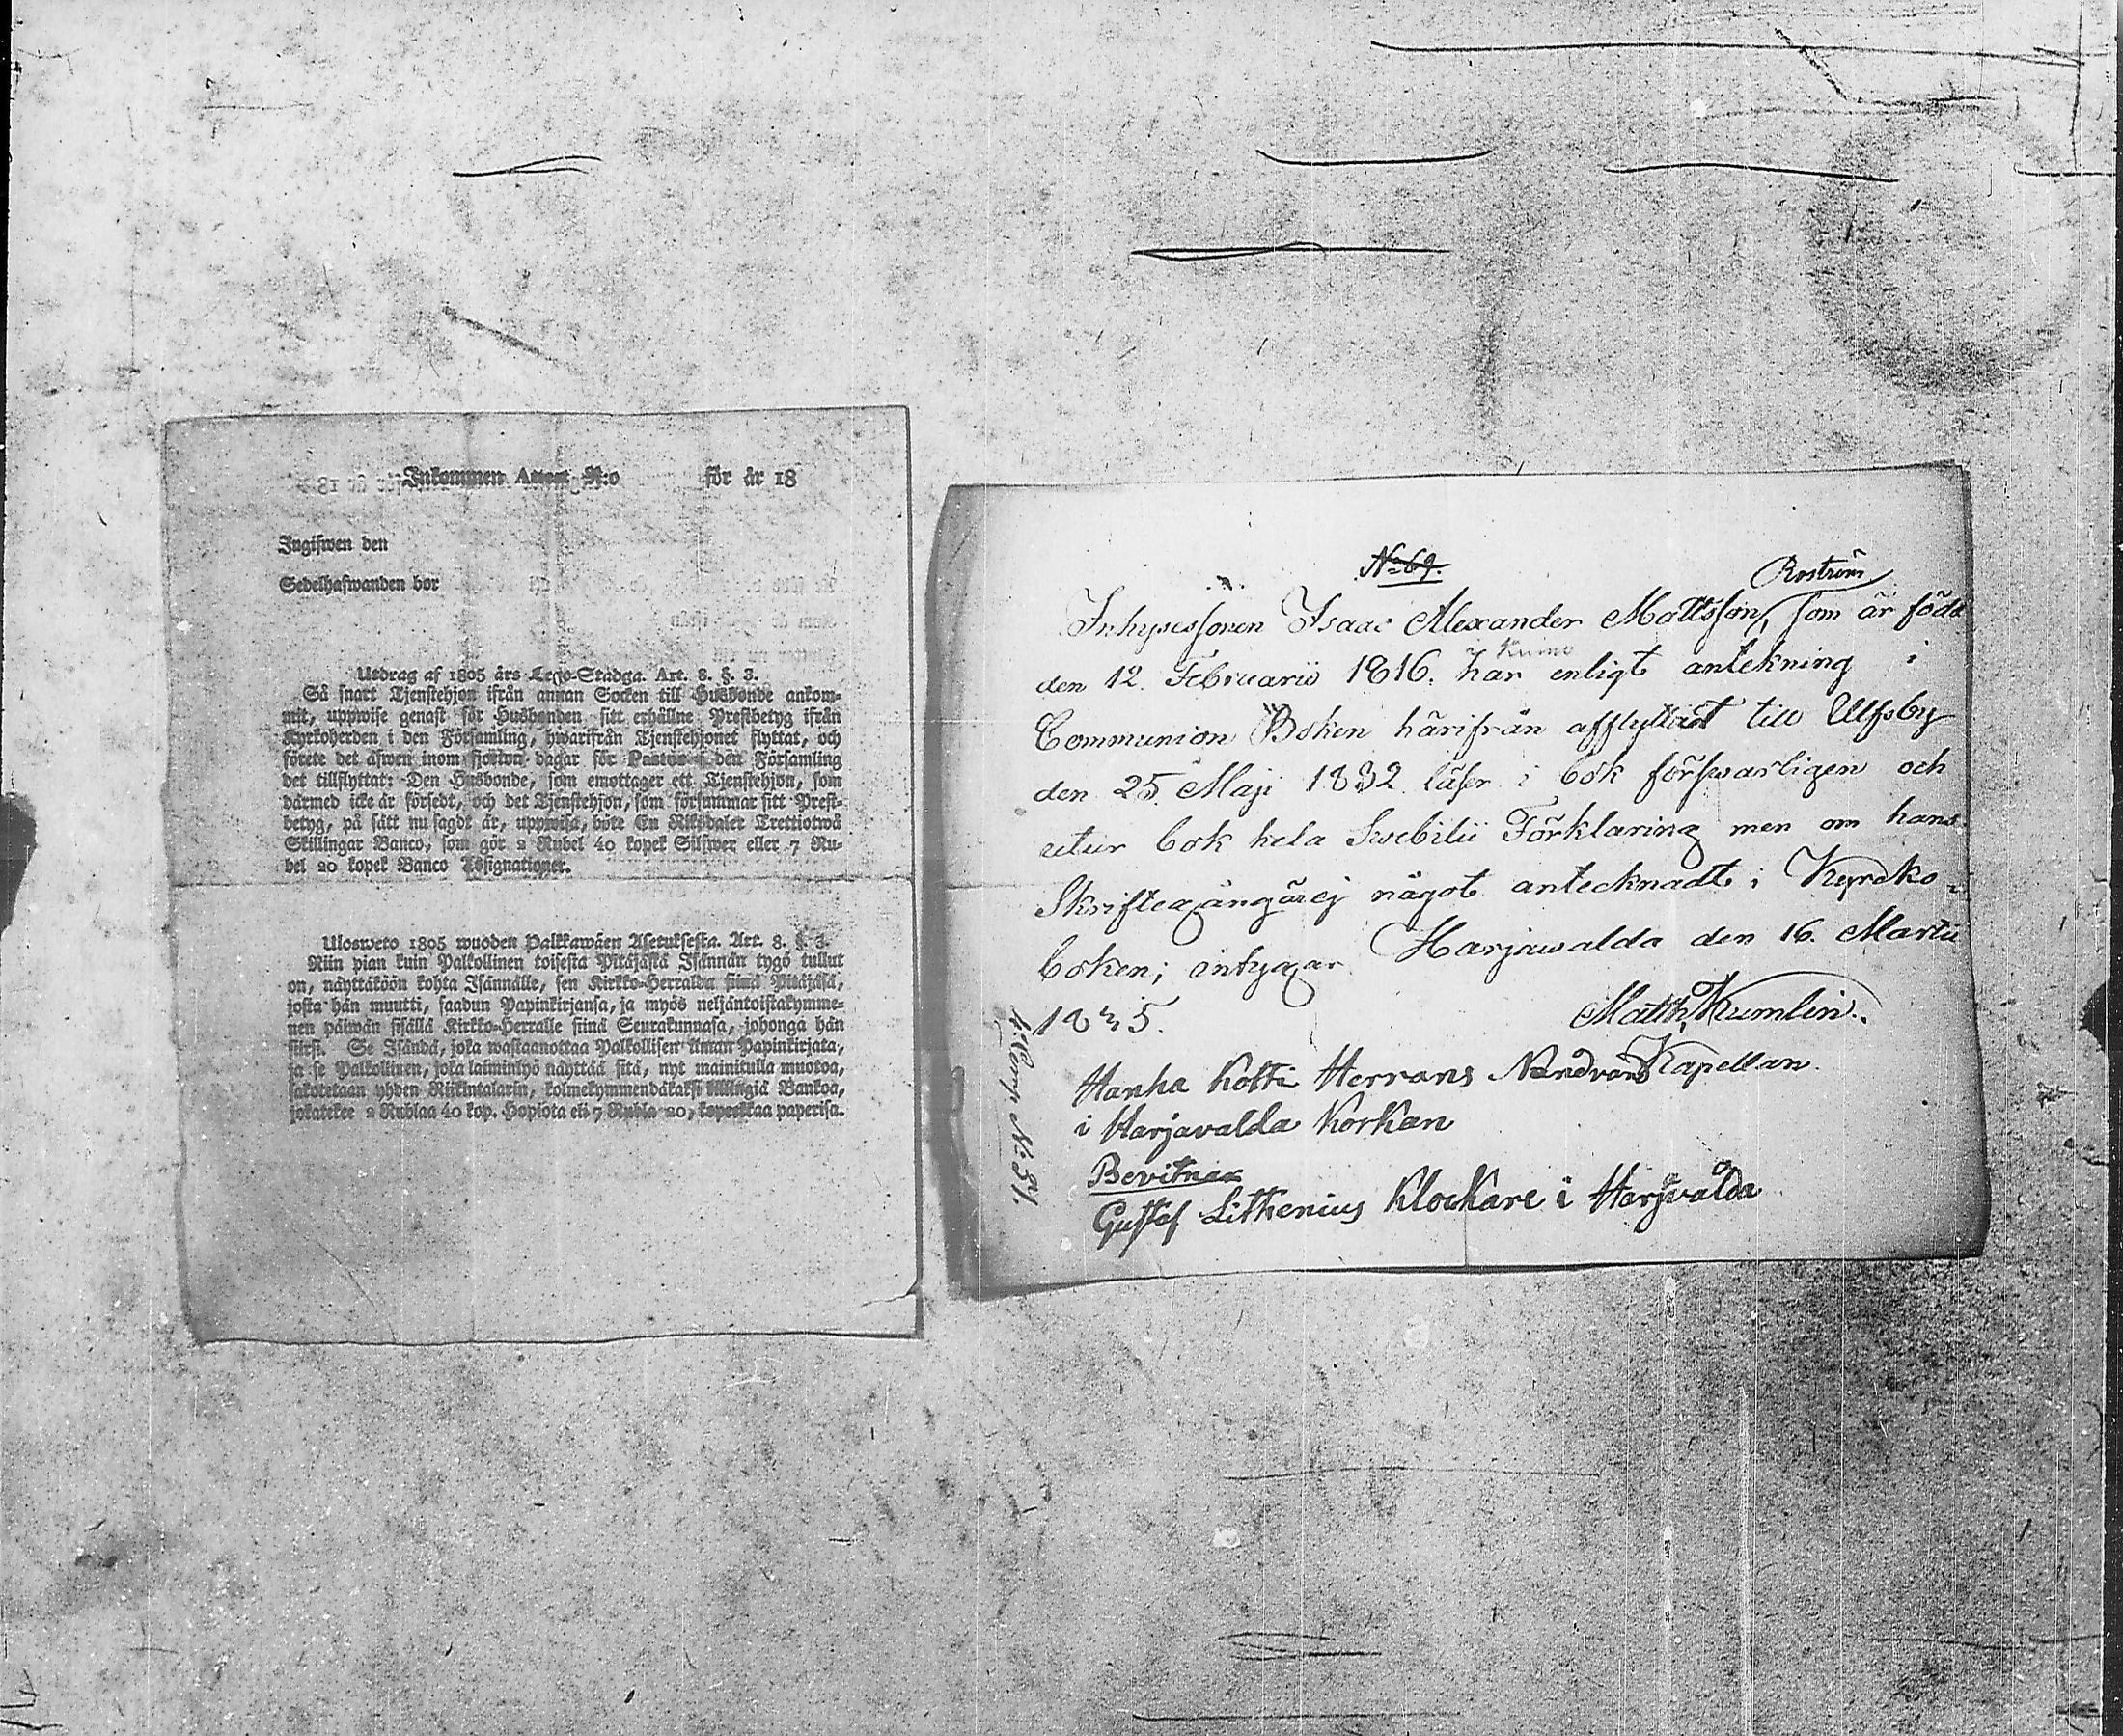 Inkommen Attest N:o för år 18
Ingifwen den
Sedelhafwanden bor
Utdrag af 1805 års Lego-Stadga. Art. 8. §. 3.
Så snart Tjenstehjon ifrån annan Socken till Husbonde ankom-
mit, uppwise genast för Husbonden sitt erhållne Prestbetyg ifrån
Kyrkoherden i den Församling, hwarifrån Tjenstehjonet flyttat, och
förete det äfwen inom fjorton dagar för Pastor i den Församling
det tillflyttat: Den Husbonde, som emottager ett Tjenstehjon, som
därmed icke är försedt, och det Tjenstehjon, som försummar sitt Prest-
betyg, på sätt nu sagdt är, uppwisa, böte En Riksdaler Trettiotwå
Skillingar Banco, som gör 2 Rubel 40 kopek Silfwer eller 7 Ru-
bel 20 kopek Banco Assignationer.
Ulosweto 1805 wuoden Palkkawäen Asetuksesta. Art. 8. §. 3.
Niin pian kuin Palkollinen toisesta Pitäjästä Isännän tygö tullut
on, näyttäköön kohta Isännälle, sen Kirkko-Herralda siinä Pitäjäsä,
josta hän muutti, saadun Papinkirjansa, ja myös neljäntoistakymme-
nen päiwän sisällä Kirkko-Herralle siinä Seurakunnasa, johonga hän
siirsi. Se Isändä, joka wastaanottaa Palkollisen ilman Papinkirjata,
ja se Palkollinen, joka laiminlyö näyttää sitä, nyt mainitulla muotoa,
sakotetaan yhden Riikintalarin, kolmekymmendäkaksi killingiä Bankoa,
jokatekee 2 Ruplaa 40 kop. Hopiota eli 7 Rupla 20, kopeekkaa paperisa.
N:o 69.
Roström
Inhysessonen Isaac Alexander Mattsson, som är född
Kumo
den 12. Februarii 1816. har enligt antekning i
Communion Boken härifrån afflyttat till Ulfsby
den 25. Maji 1832. läser i bok försvarligen och
utur bok hela Svebilii Förklaring men om hans
Skriftegång är ej något antecknadt i Kyrcko-
boken; intygar Harjawalda den 16. Martii
1835. Matth. Kumlin.
Kapellan.
Hanha Kotti Herrans Nandvard
i Harjavalda Korkan
Bevitnar
Gustaf Lithenius Klockare i Harjavalda
N:o 81.